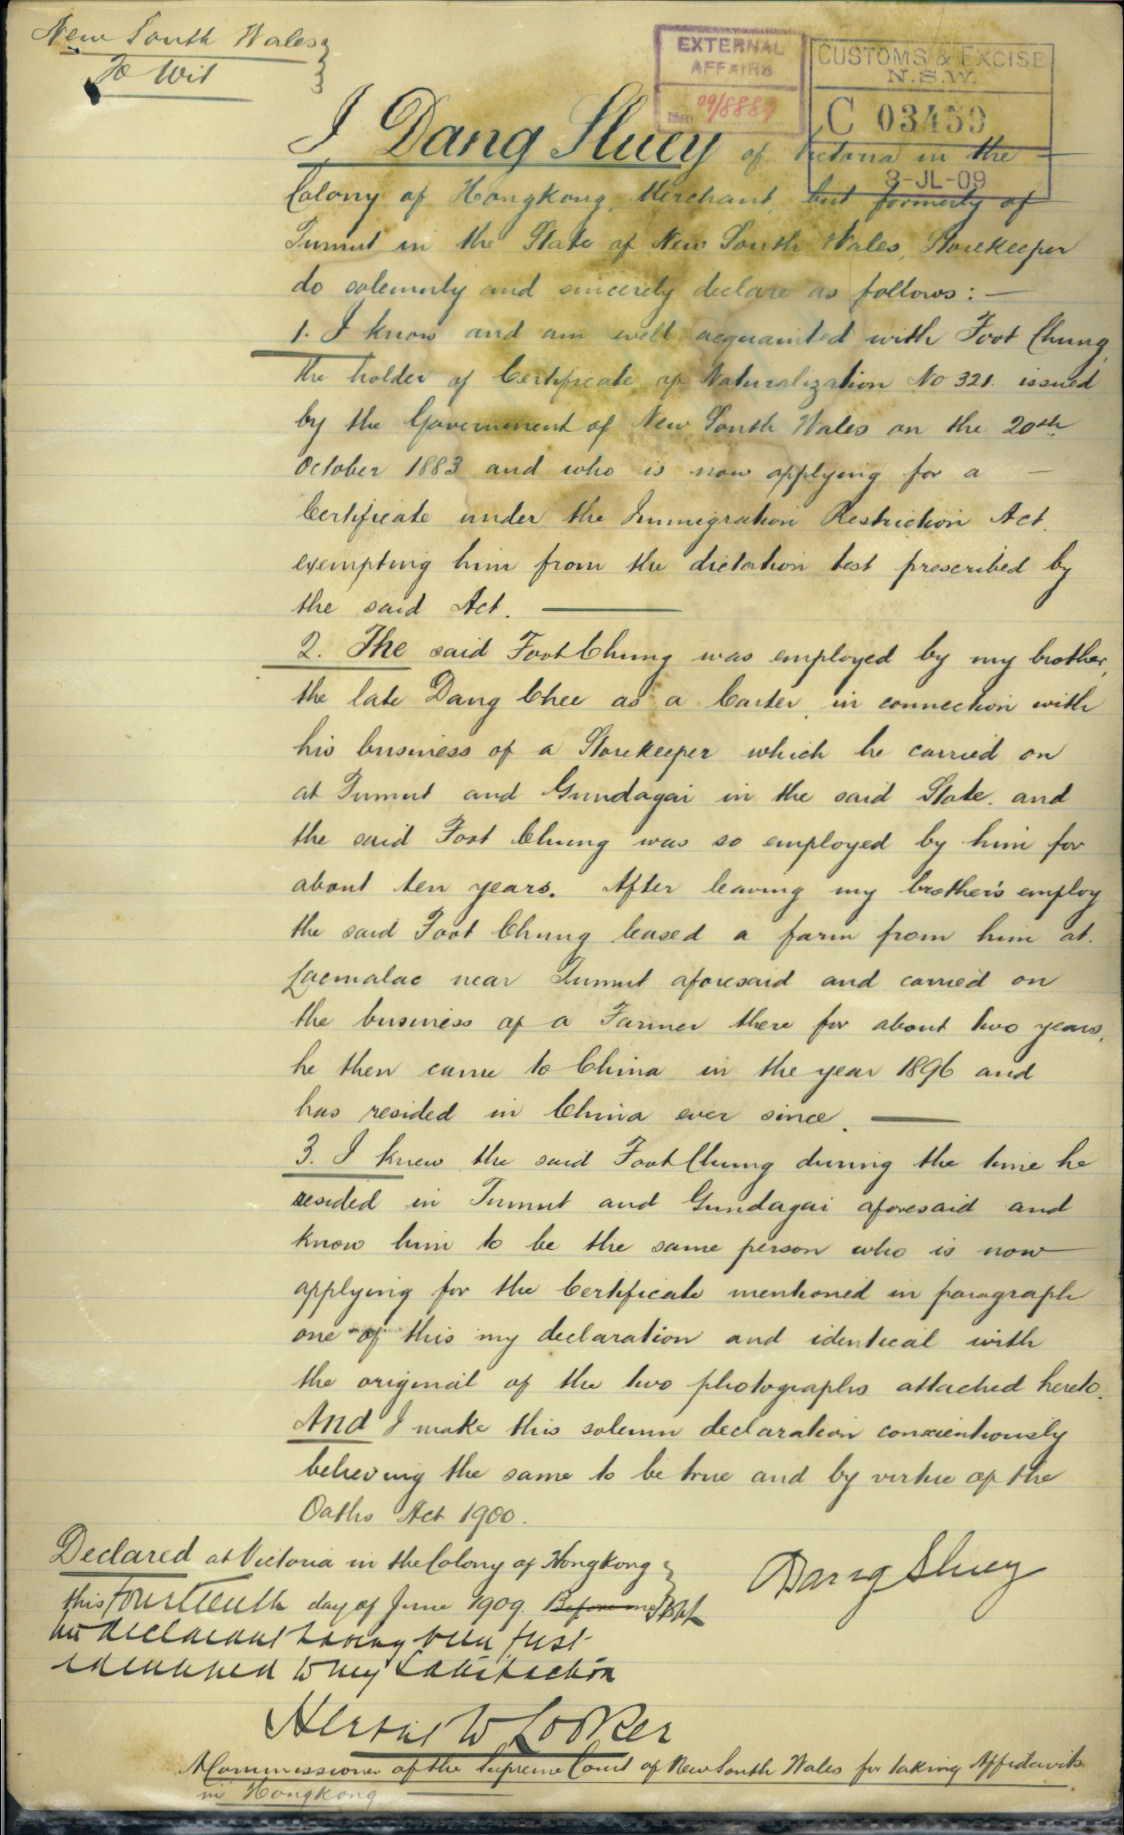 New South Wales }
To Wit
EXTERNAL
AFFAIRS
09/8889
CUSTOMS & EXCISE
N.S.W.
C 03459
3-JL-09
I Dang Sluey of Victoria in the
Colony of Hongkong, Merchant, but formerly of
Tumut in the State of New South Wales, Storekeeper
do solemnly and sincerely declare as follows: —
1. I know and am well acquainted with Foot Chung,
the holder of Certificate of Naturalization No 321. issued
by the Government of New South Wales on the 20th
October 1883 and who is now applying for a —
Certificate under the Immigration Restriction Act.
exempting him from the dictation test prescribed by
the said Act. —
2. The said Foot Chung was employed by my brother,
the late Dang Chee as a Carter, in connection with
his business of a Storekeeper which he carried on
at Tumut and Gundagai in the said State. and
the said Foot Chung was so employed by him for
about ten years. After leaving my brother's employ
the said Foot Chung leased a farm from him at.
Lacmalac near Tumut aforesaid and carried on
the business of a Farmer there for about two years,
he then came to China in the year 1896 and
has resided in China ever since. —
3. I knew the said Foot Chung during the time he
resided in Tumut and Gundagai aforesaid and
know him to be the same person who is now
applying for the Certificate mentioned in paragraph
one of this my declaration and identical with
the original of the two photographs attached hereto.
And I make this solemn declaration conscientiously
believing the same to be true and by virtue of the
Oaths Act 1900.
Declared at Victoria in the Colony of Hongkong }
this fourteenth day of June 1909. Before me
Dang Sluey
the declarant having been first
identified to my satisfaction
W Looker
A Commissioner of the Supreme Court of New South Wales for taking Affidavits
in Hongkong